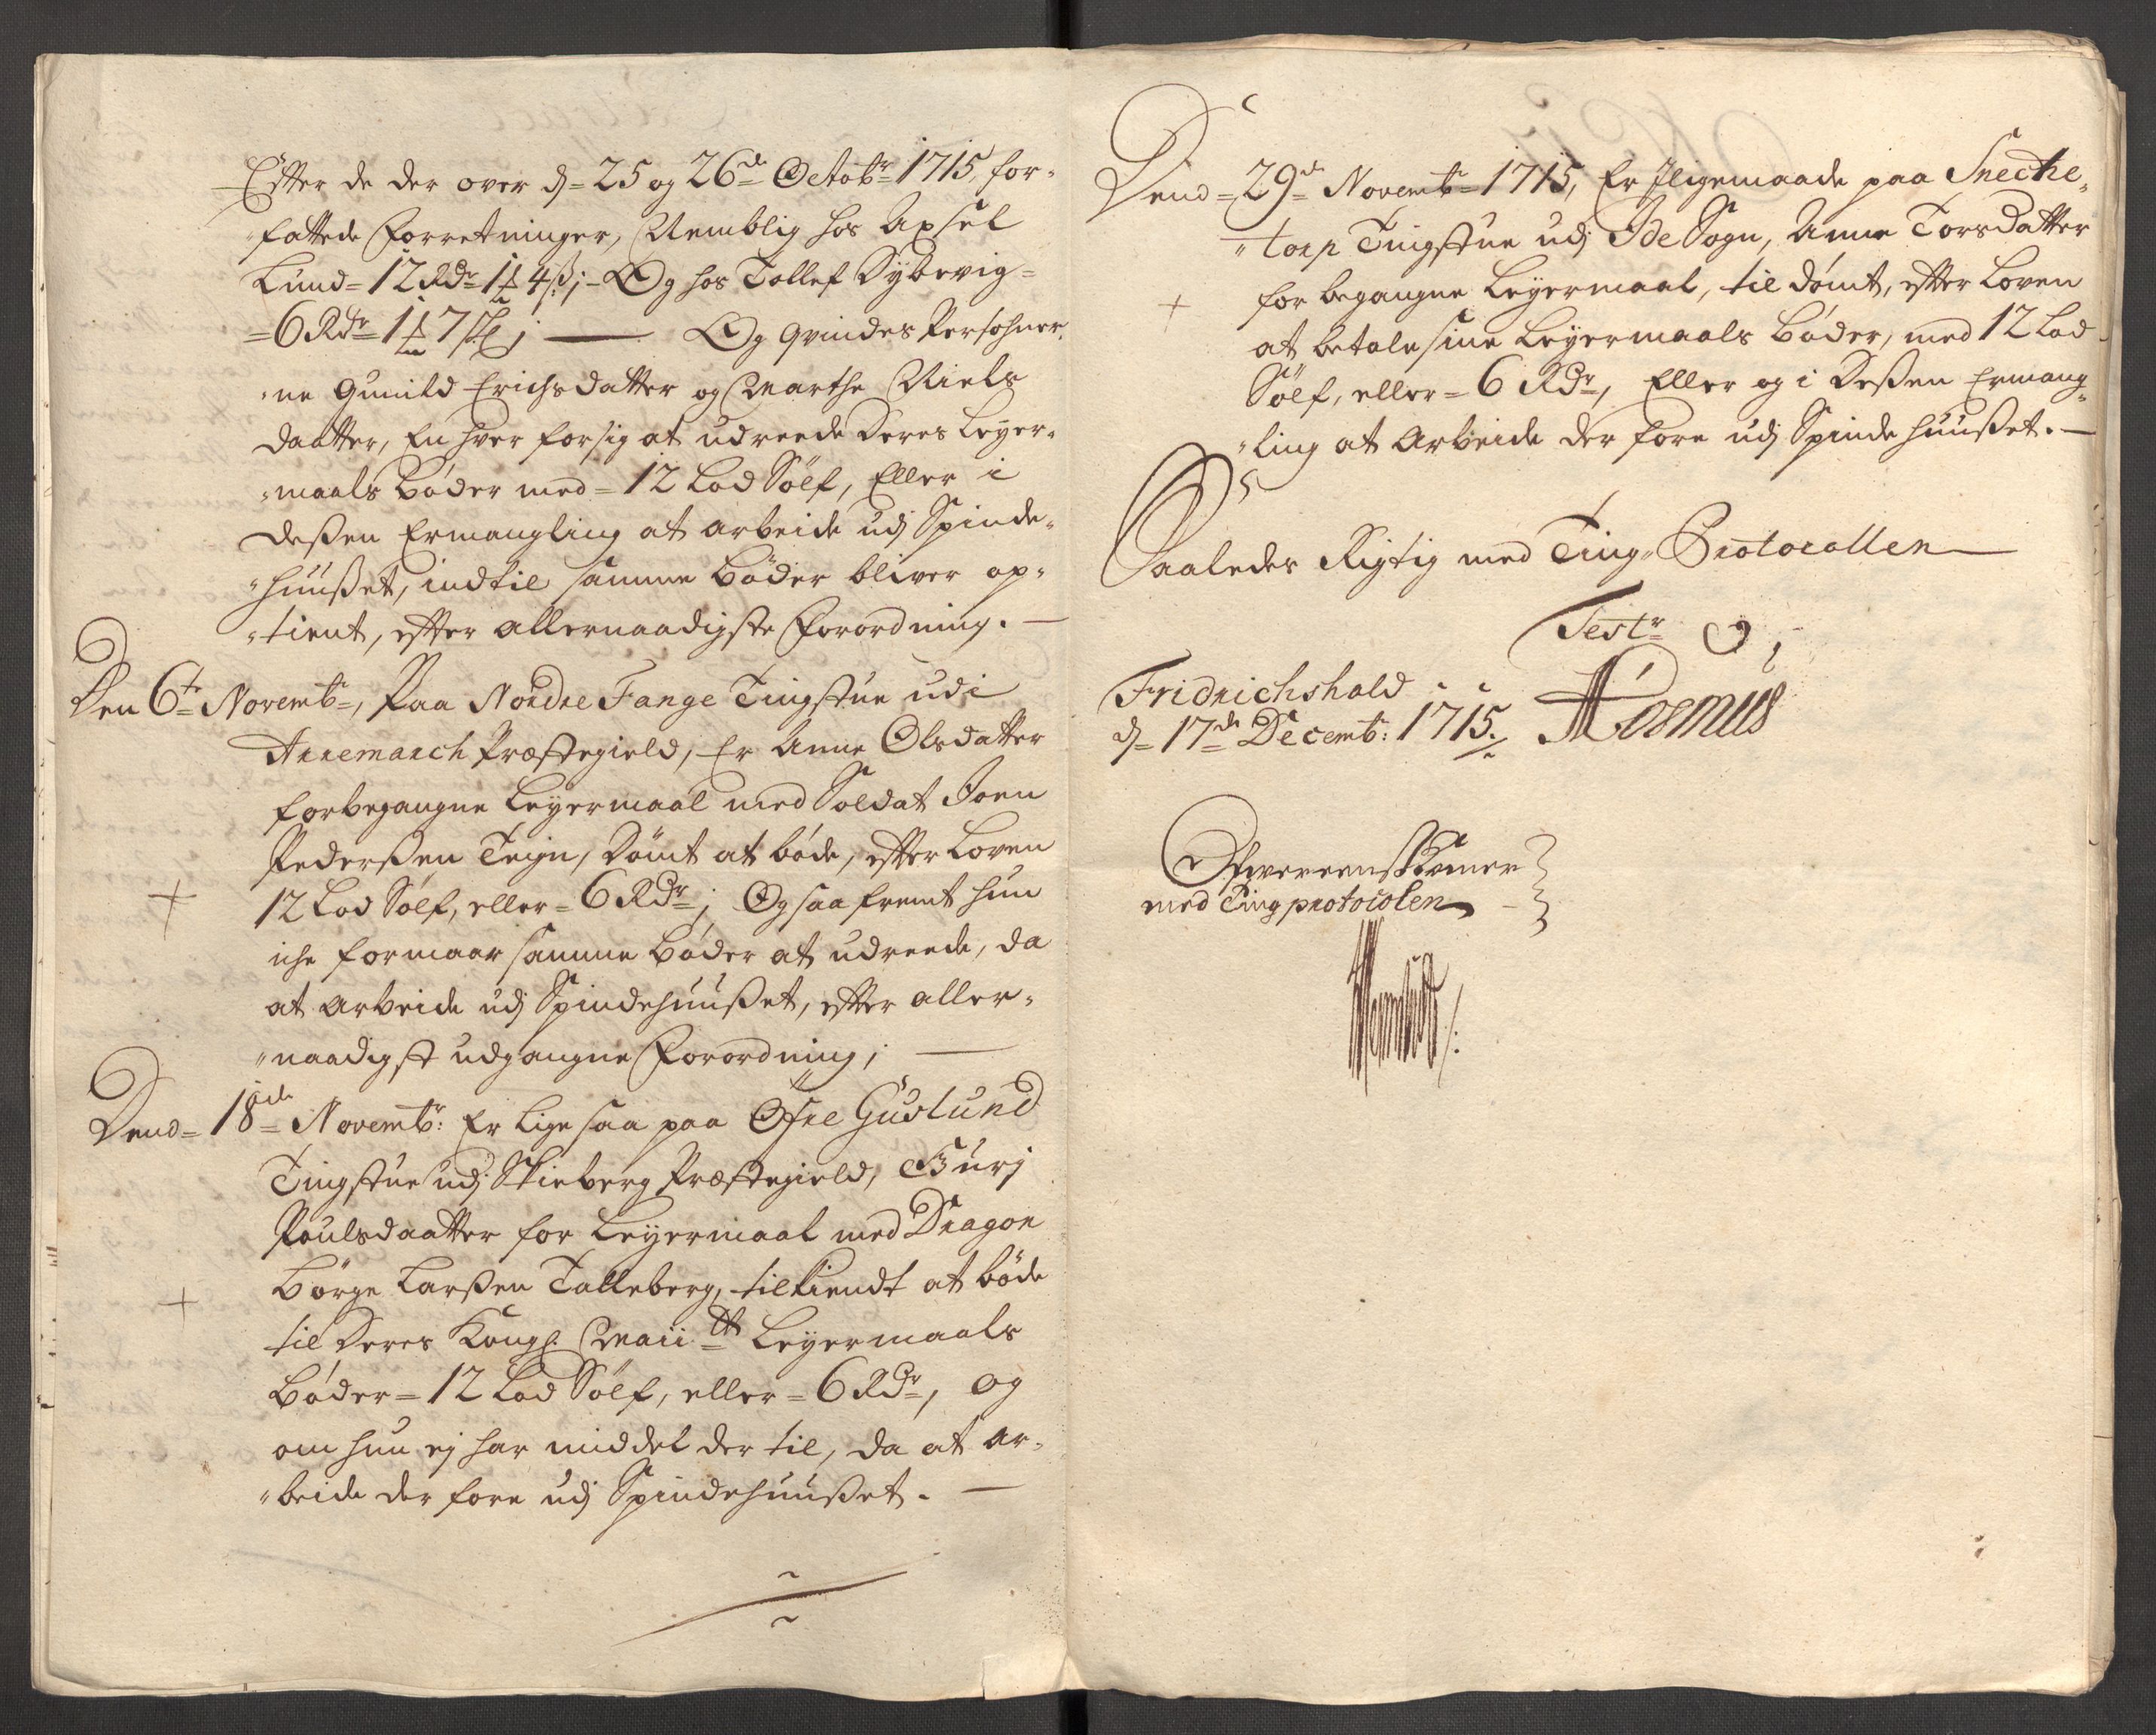 Efter de der over d= 25 og 26de Octobr 1715, for-
fattede Forretninger, Nemblig hos Axsel
Lund= 12 Rdr 1 4 ß; - Og hos Tollef Dybevig=
=6 Rdr 1 7 ß; — Og qvindes Persohner,
ne Gunild Erichsdatter og Marthe Niels
daatter, En hver for sig at udreede Deres Leyer-
maals Bøder med= 12 Lod Sølf, Eller i
Deßen Ermangling at arbeide udj Spinde-
huußet, indtil samme Bøder bliver op-
tient, efter allernaadigste Forordning. —
Den 6te Novembr, Paa Nordre Fange Tingstue udi
Arremarch Præstegield, Er Anne Olsdatter
for begangne Leyermaal med Soldat Joen
Pederßen Teign, Dømt at bøde, efter Loven
12 Lod Sølf, eller= 6 Rdr; Og saa fremt hun
iche formaar samme Bøder at udreede, da
at arbeide udj Spindehuußet, efter aller-
naadigst udgangne Forordning; —
Dend= 18de Novembr: Er lige saa paa Øfre Guslund
Tingstue udj Skieberg Præstegield, Burj
Poulsdaatter for Leyermaal med Dragon
Børge Larßen Talleberg, tilkiendt at bøde
til Deres Kongl. Maiitt Leyermaals
Bøder= 12 Lod Sølf, eller= 6 Rdr, og
om hun ej har middel der til, da at ar-
beide der fore udj Spindehuußet. —
Dend= 29de Novembr 1715, Er Jligemaade paa Sneche-
torp Tingstue udj Ide Sogn, Anne Torsdatter
for begangne Leyermaal, til dømt, efter Loven
at betale sine Leyermaals Bøder, med 12 Lod
Sølf, eller= 6 Rdr, Eller og i Deßen Ermang-
ling at Arbeide der fore udj Spinde huußet. —
Saaledes Rigtig med Ting-Protocollen
Testr
Fridrichshald
d= 17de Decembr: 1715. Rosmus
Ofwereenskommer
med Tingprotocolen